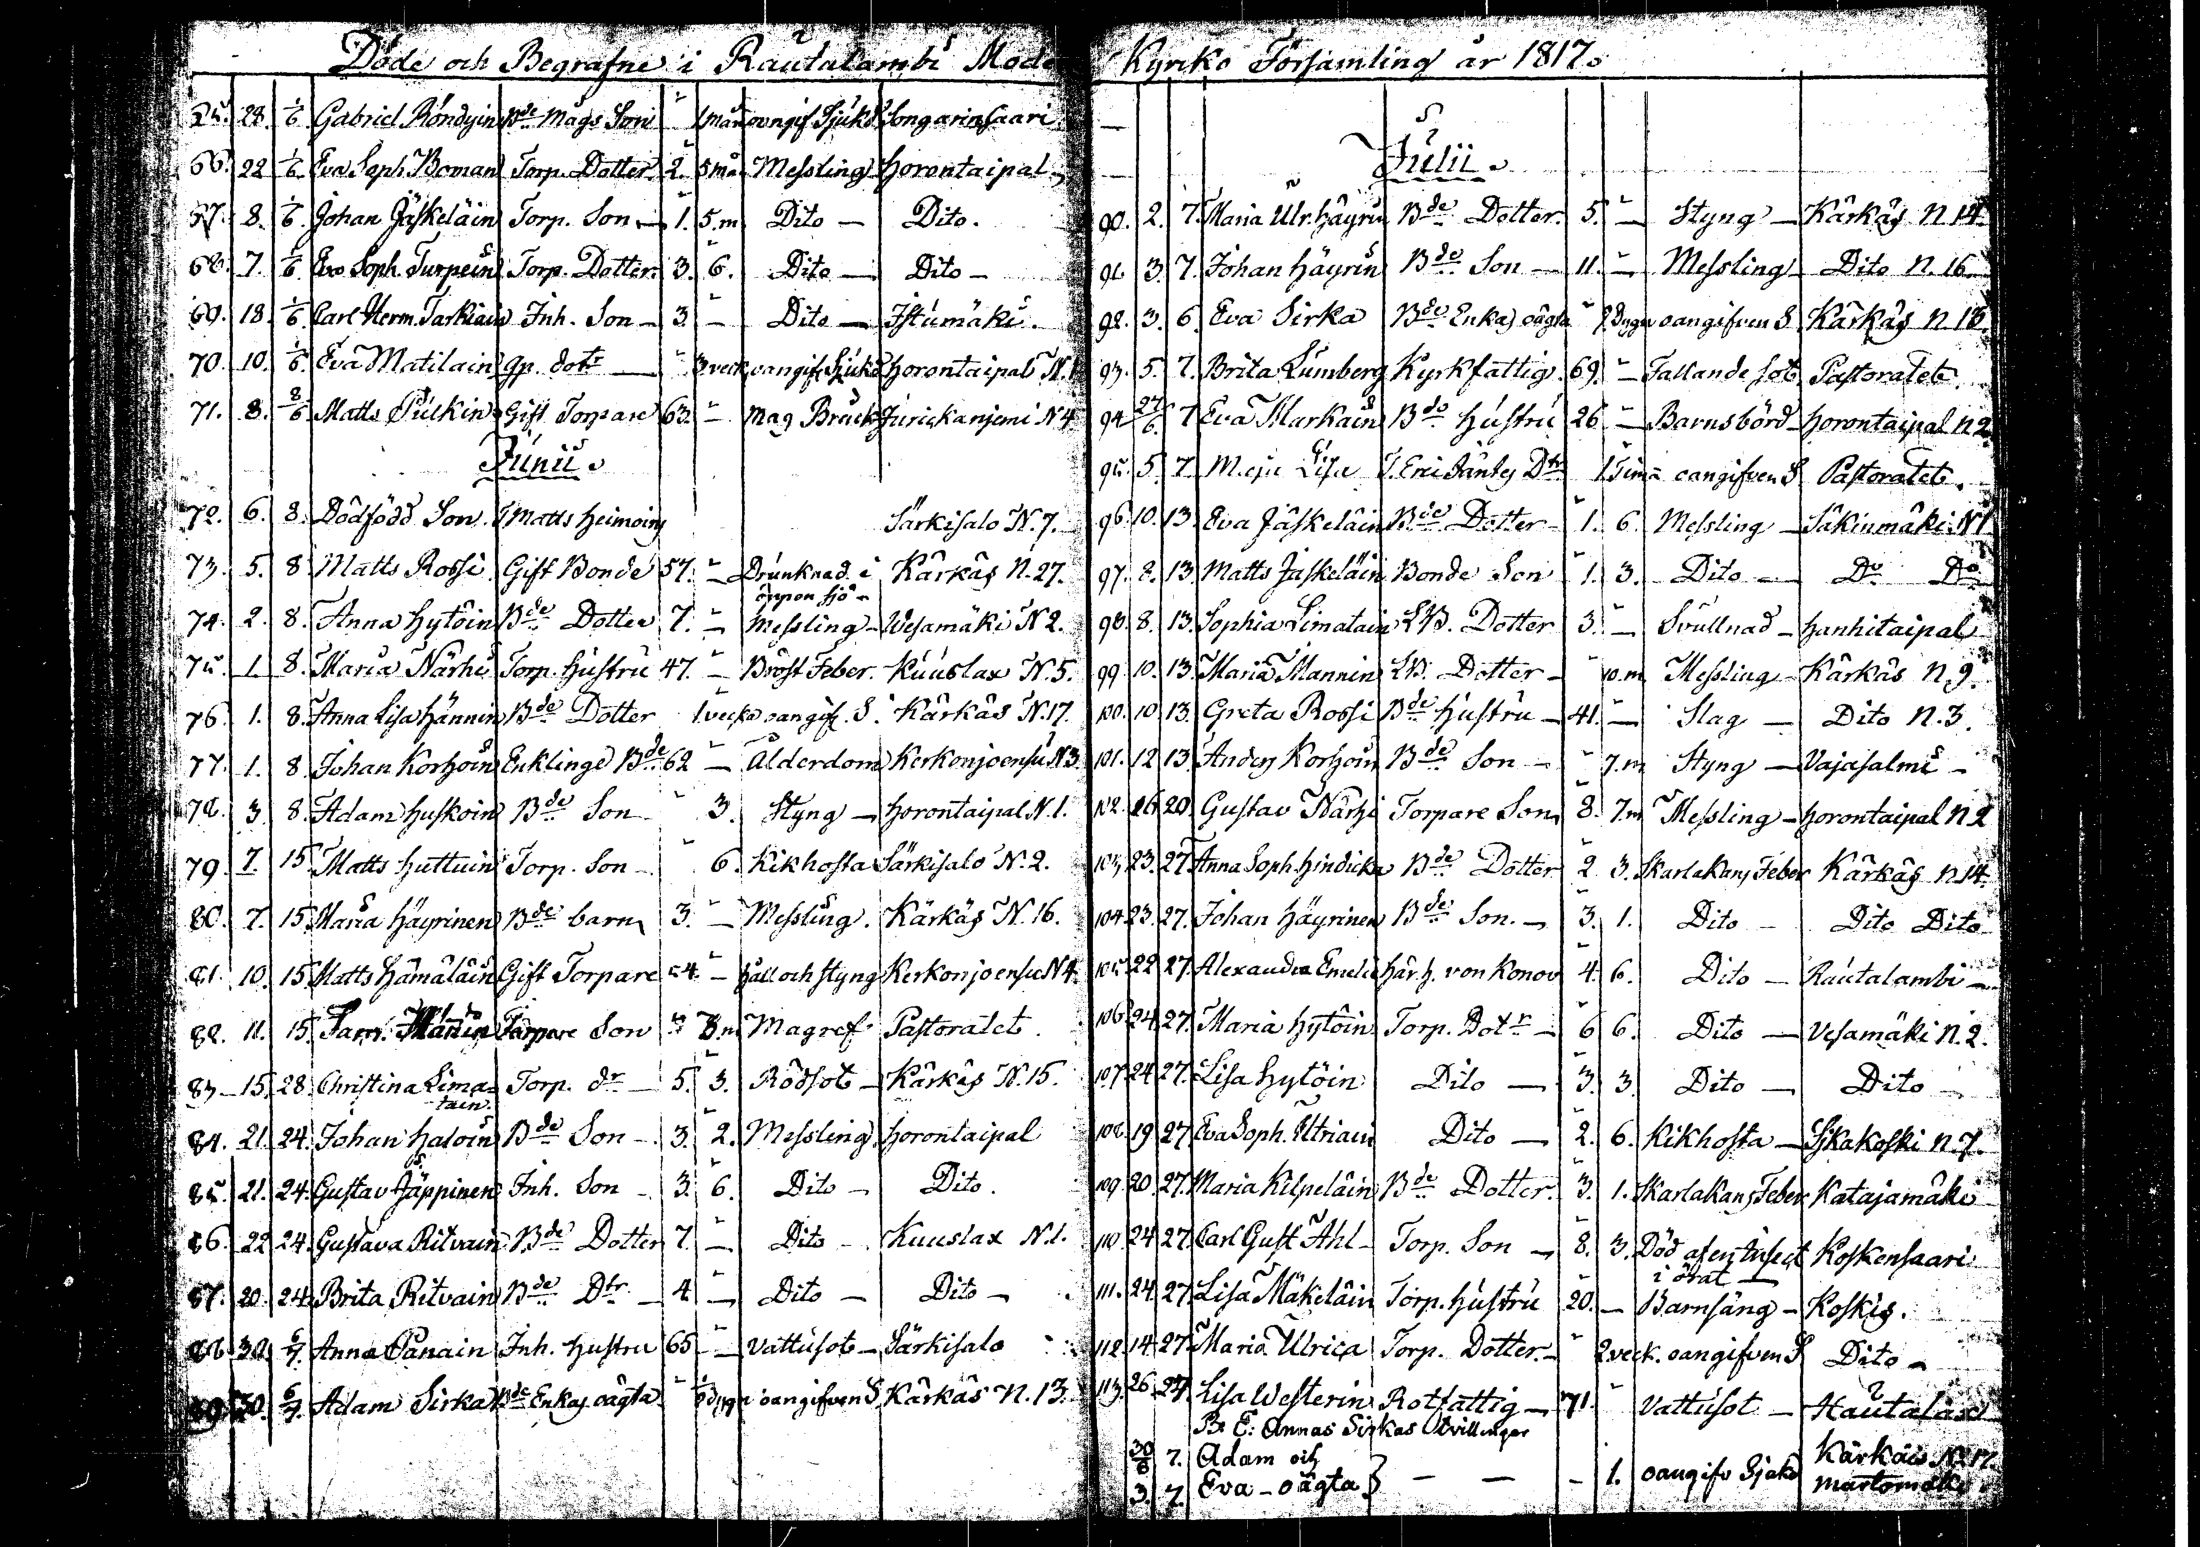 Döde och Begrafne i Rautalambi Moder Kyrko Församling år 1817.
28. 1/6 Gabriel Röndyin Bde Mågs Son 1 mån oangif Sjukd Songarinsaari
66. 22 1/6 Eva Soph. Boman Torp. Dotter 2. 5 må Messling Horontaipal
67. 8. 1/6 Johan Jäskeläin Torp. Son 1. 5.m Dito Dito.
68. 7. 1/6 Eva Soph. Turpein Torp. Dotter 3. 6. Dito Dito
69. 18. 1/6 Carl Herm. Tarkiain Inh. Son 3. Dito Istumäki.
70. 10. 1/6 Eva Matilain gp. dotr 3 veck oangif. Sjukd Horontaipal N.1
71. 8. 2/6 Matts Pulkin Gift Torpare 63. Mag Bråck Jurickaniemi N 4
Junii
72. 6. 8. Dödfödd Son. T Matts Heimoins Särkisalo N. 7.
73. 5. 8 Matts Rossi Gift Bonde 57. Drunknad i Kärkäs N. 27.
öppen sjö
74. 2. 8. Anna Hytöin Bde Dotter 7. Messling Wesamäki N 2.
75. 1. 8. Maria Närhi Torp. Hustru 47. Bröst Feber. Kuuslax N. 5.
76. 1. 8. Anna Lisa Hännin Bde Dotter 1 vecka oangif. S. Kärkäs N. 17.
77. 1. 8 Johan Korhoin Enklinge Bde 62 Ålderdom Kerkonjoensu N 3
78. 3 8. Adam Huskoin Bde Son 3. Styng Horontaipal N. 1.
79. 7. 15 Matts Huttuin Torp. Son 6. Kikhosta Särkisalo N. 2.
80. 7. 15 Maria Häyrinen Bde barn 3. Messling. Kärkäs N. 16.
81. 10. 15 Matts Hämäläin Gift Torpare 54. Håll och Styng Kerkonjoensu N 4.
82. 11. 15. Torpare Son m Magref Pastoratet.
83 15. 28. Christina Lima- Torp. dr 5. 3. Rödsot Kärkäs N. 15.
tain.
84. 21. 24. Johan Haloin Bde Son 3. 2. Messling Horontaipal
85. 21. 24. Gustav Jäppinen Inh. Son 3. 6. Dito Dito.
86. 22 24. Gustava Ritvain Bde Dotter 7. Dito Kuuslax N. 1.
87. 20. 24. Brita Ritvain Bde Dtr 4 Dito Dito
88 30. 6/7. Anna Panain Inh. Hustru 65 Vattusot Särkisalo
89 30. 6/7. Adam Sirka Bde Enkas oägta dygn oangifven S. Kärkäs N. 13.
Julii
90. 2. 7. Maria Ulr. Häyrin Bde Dotter. 5. Styng Kärkäs N 14.
91. 3. 7. Johan Häyrin Bde Son 11. Messling Dito N. 16
92. 3. 6. Eva Sirka Bde Enkas oägta dygn oangifven S. Kärkäs N 13.
93. 5. 7. Brita Lumberg Kyrkfattig. 69. Fallande sot Pastoratet.
94 27/6. 7 Eva Markain Bde Hustru 26 Barnsbörd Horontaipal N 2
95. 5. 7. Lisa Dtr 1 Tima oangifven S. Pastoratet.
96. 10. 13. Eva Jäskeläin Bde Dotter 1. 6. Messling Säkinmäki N 1
97. 8. 13. Matts Jäskeläin Bonde Son 1. 3. Dito Do Do
98. 8. 13. Sophia Limatain LB. Dotter 3. Svullnad Hanhitaipal
99. 10. 13. Maria Mannin LB. Dotter 10.m Messling Kärkäs N. 9.
100. 10 13. Greta Rossi Bde Hustru 41. Slag Dito N. 3.
101. 12 13. Anders Korhoin Bde Son 7.m Styng Vajasalmi
102. 16 20 Gustav Närhi Torpare Son 8. 7.m Messling Horontaipal N 2
103 23. 27 Anna Soph. Hindicka Bde Dotter 2 3. Skarlakans Feber Kärkäs N 14.
104 23. 27. Johan Häyrinen Bde Son. 3. 1. Dito Dito Dito
105 22 27. Alexandra Emelie Här. h. von Konov 4. 6. Dito Rautalambi
106 24 27. Maria Hytöin Torp. Dotr 6 6. Dito Vesamäki N. 2.
107 24 27. Lisa Hytöin Dito 3. 3 Dito Dito
108. 19 27 Eva Soph. Utriain Dito 2. 6. Kikhosta Sikakoski N. 7.
109. 20 27. Maria Kilpeläin Bde Dotter. 3. 1. Skarlakans Feber Katajamäki
110 24 27. Carl Gust Ahl Torp. Son 8. 3. Död af en Insect Koskensaari
i örat
111. 24. 27. Lisa Mäkeläin Torp. Hustru 20. Barnsäng Koskis.
112. 14 27. Maria Ulrica Torp. Dotter. 2 veck. oangifven S Dito
113. 26. 27. Lisa Westerin Rotfattig 71. Vattusot
Be E: Annas Sirkas tvillingar
30/6 7. Adam och 1. oangifv Sjukd Kärkäis No 17.
3. 7. Eva oägta Martomäki